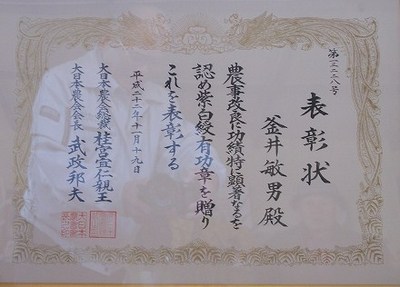 第一二三八号
表彰状
釜井敏男殿
農事改良に功績特に顕著なるを
認め紫白綬有功章を贈り
これを表彰する
平成二十二年十一月十九日
大日本農会総裁 桂宮宜仁親王
大日本農会会長 武政邦夫